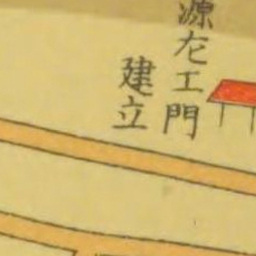 源左エ門
建立